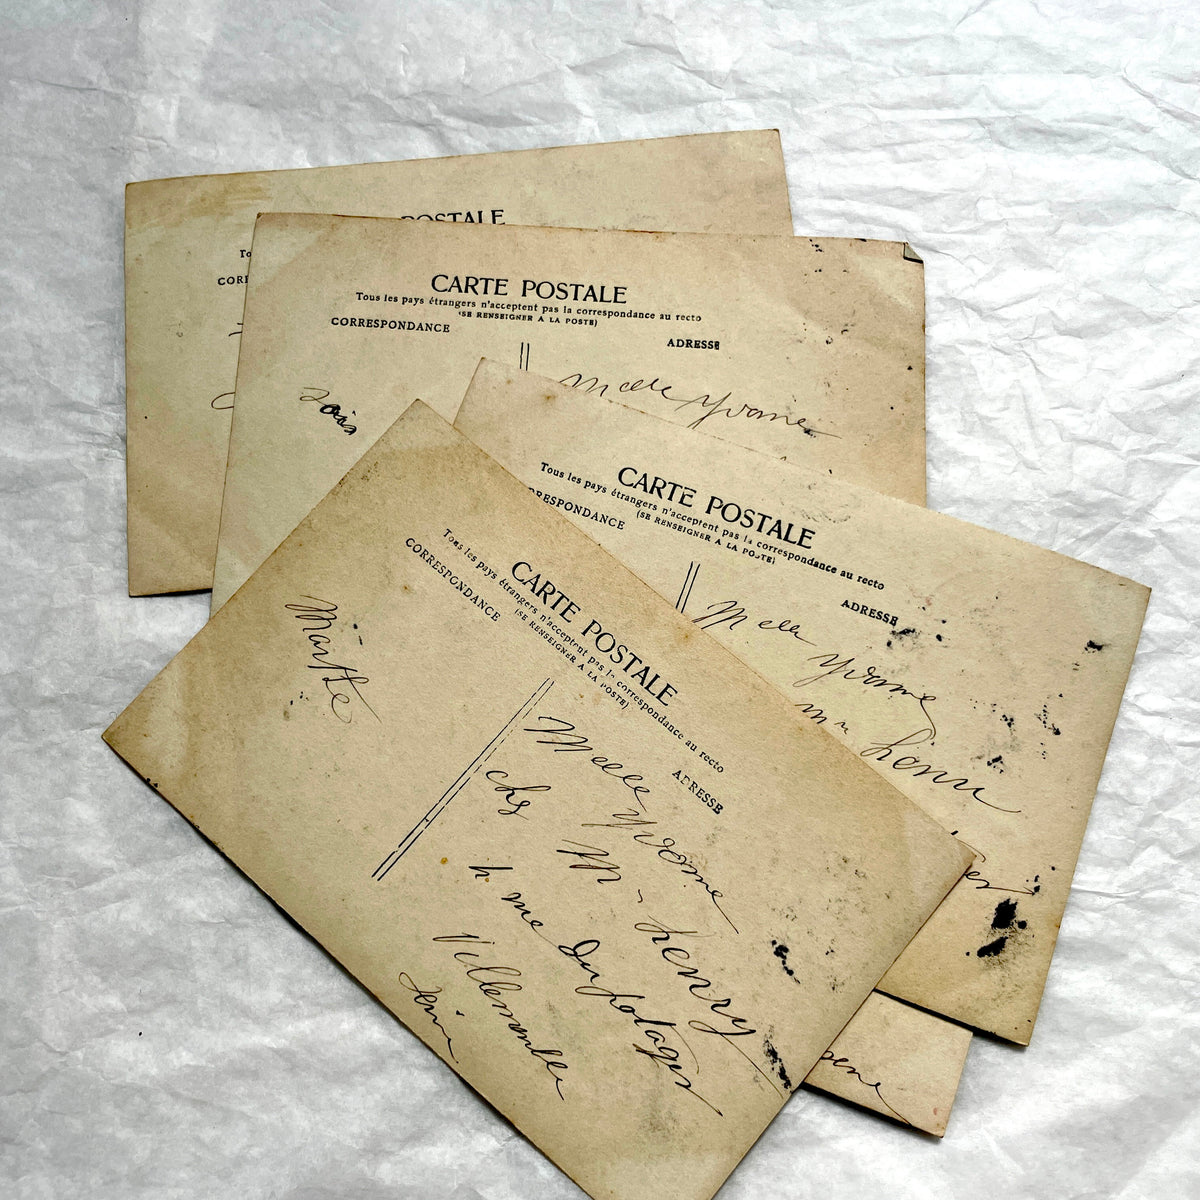 POSTALE
CARTE POSTALE
Tous les pays étrangers n'acceptent pas la correspondance au recto
(SE RENSEIGNER A LA POSTE)
CORRESPONDANCE
ADRESSE
Melle Yvonne
CARTE POSTALE
Tous les pays étrangers n'acceptent pas la correspondance au recto
(SE RENSEIGNER A LA POSTE)
RESPONDANCE
ADRESSE
Melle
Yvonne
Mr Henri
CARTE POSTALE
Tous les pays étrangers n'acceptent pas la correspondance au recto
(SE RENSEIGNER A LA POSTE)
CORRESPONDANCE
ADRESSE
Marthe
Melle Yvonne
chs
M - henry
rue du potager
Villemomble
Seine